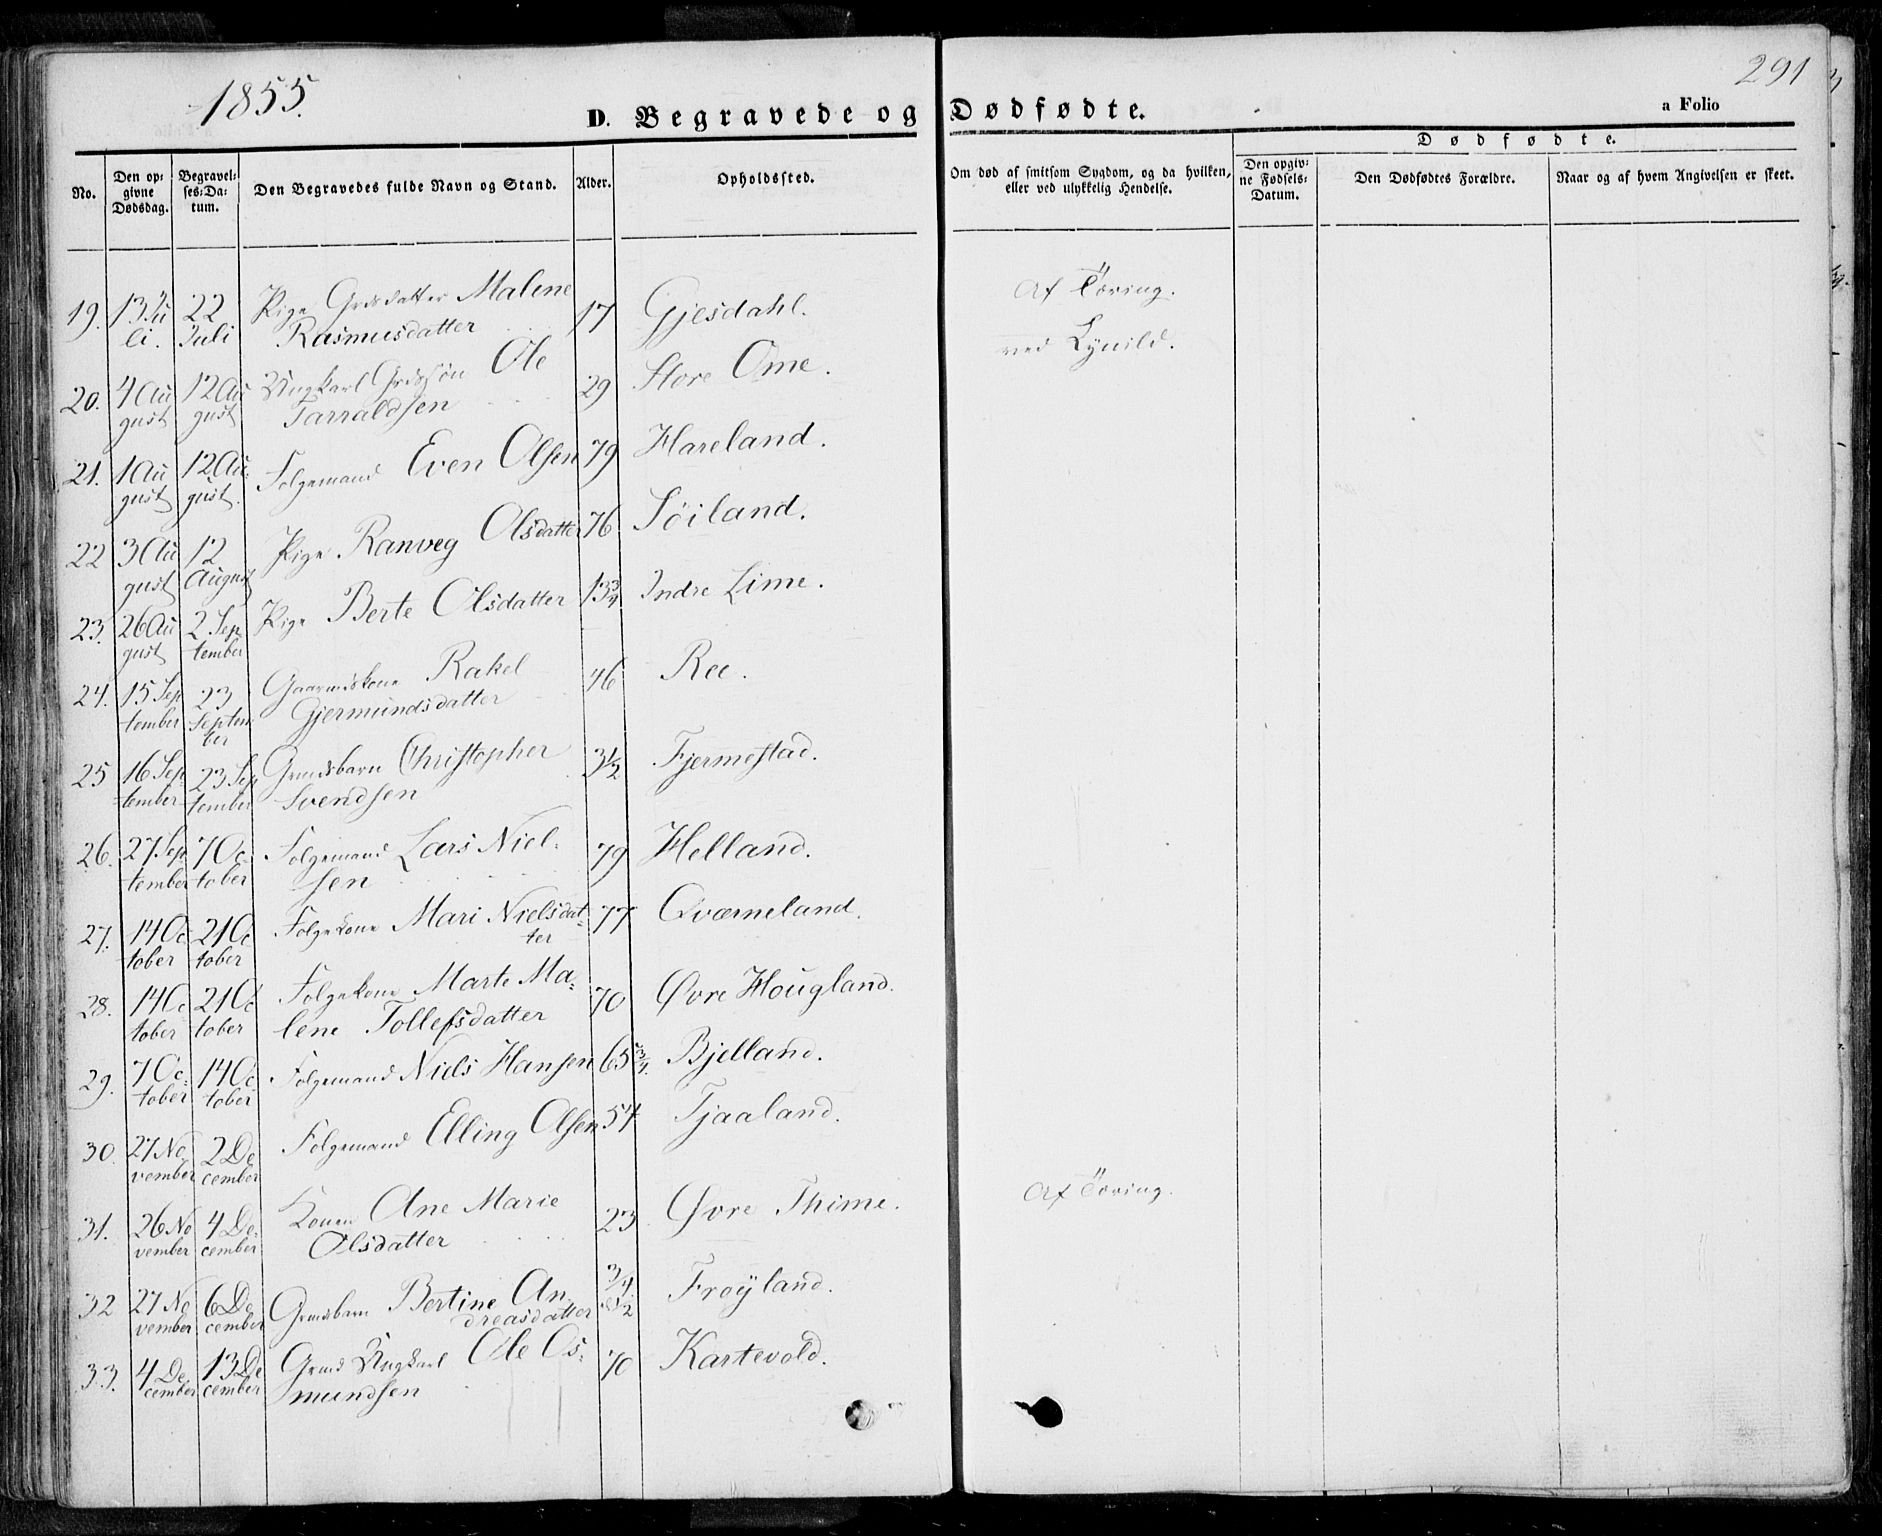 1855.
291
D. Begravede og Dødfødte.
a Folio
No.
Den opgivne Dødsdag.
Begravelses-Datum.
Den Begravedes fulde Navn og Stand.
Alder.
Opholdssted.
Om død af smitsom Sygdom, og da hvilken, eller ved ulykkelig Hendelse.
Dødfødte.
Den opgivne Fødsels-Datum.
Den Dødfødtes Forældre.
Naar og af hvem Angivelsen er skeet.
19. 13 Juli. 22 Juli Pige Grdsdatter Malene Rasmusdatter 17 Gjesdahl. Af Tæring.
20. 4 August 12 August Ungkarl Grdssøn Ole Tarraldsen 29 Store Ome. ved Lynild.
21. 1 August 12 August. Folgemand Even Olsen 79 Hareland.
22 3 August 12 August Pige Ranveg Olsdatter 76 Söiland.
23. 26 August 2 September Pige Berte Olsdatter 13 3/4 Indre Lime.
24. 15 September 23 September Gaarmdskone Rakel Gjermundsdatter 46 Ree.
25 16 September 23 September Grmdsbarn Christopher Svendsen 3 1/2 Fjermestad.
26. 27 September 7 October Folgemand Lars Nielsen 79 Helland.
27. 14 October 21 October Folgekone Mari Nielsdatter 77 Qværneland.
28. 14 October 21 October Folgekone Marte Malene Tollefsdatter 70 Øvre Hougland.
29. 7 October 14 October Folgemand Niels Hansen 65 3/4. Bjelland.
30. 27 November 2 December Folgemand Elling Olsen 54 Tjaaland.
31. 26 November 4 December Konen Ane Marie Olsdatter 23 Øvre Thime. Af Tæring.
32 27 November 6 December Grmdsbarn Bertine Andreasdatter Frøyland.
33. 4 December 13 December Grmd Ungkarl Ole Osmundsen 70 Kartevold.